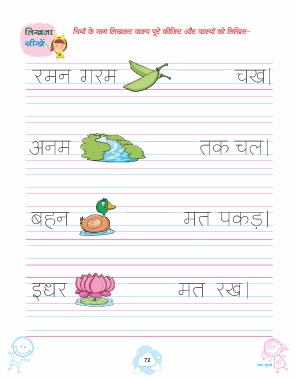 लिखना
सीखें
चित्रों के नाम लिखकर वाक्य पूरे कीजिए और वाक्यों को लिखिए-
रमन गरम चख।
अनम तक चल।
बहन मत पकड़।
इधर मत रख।
72